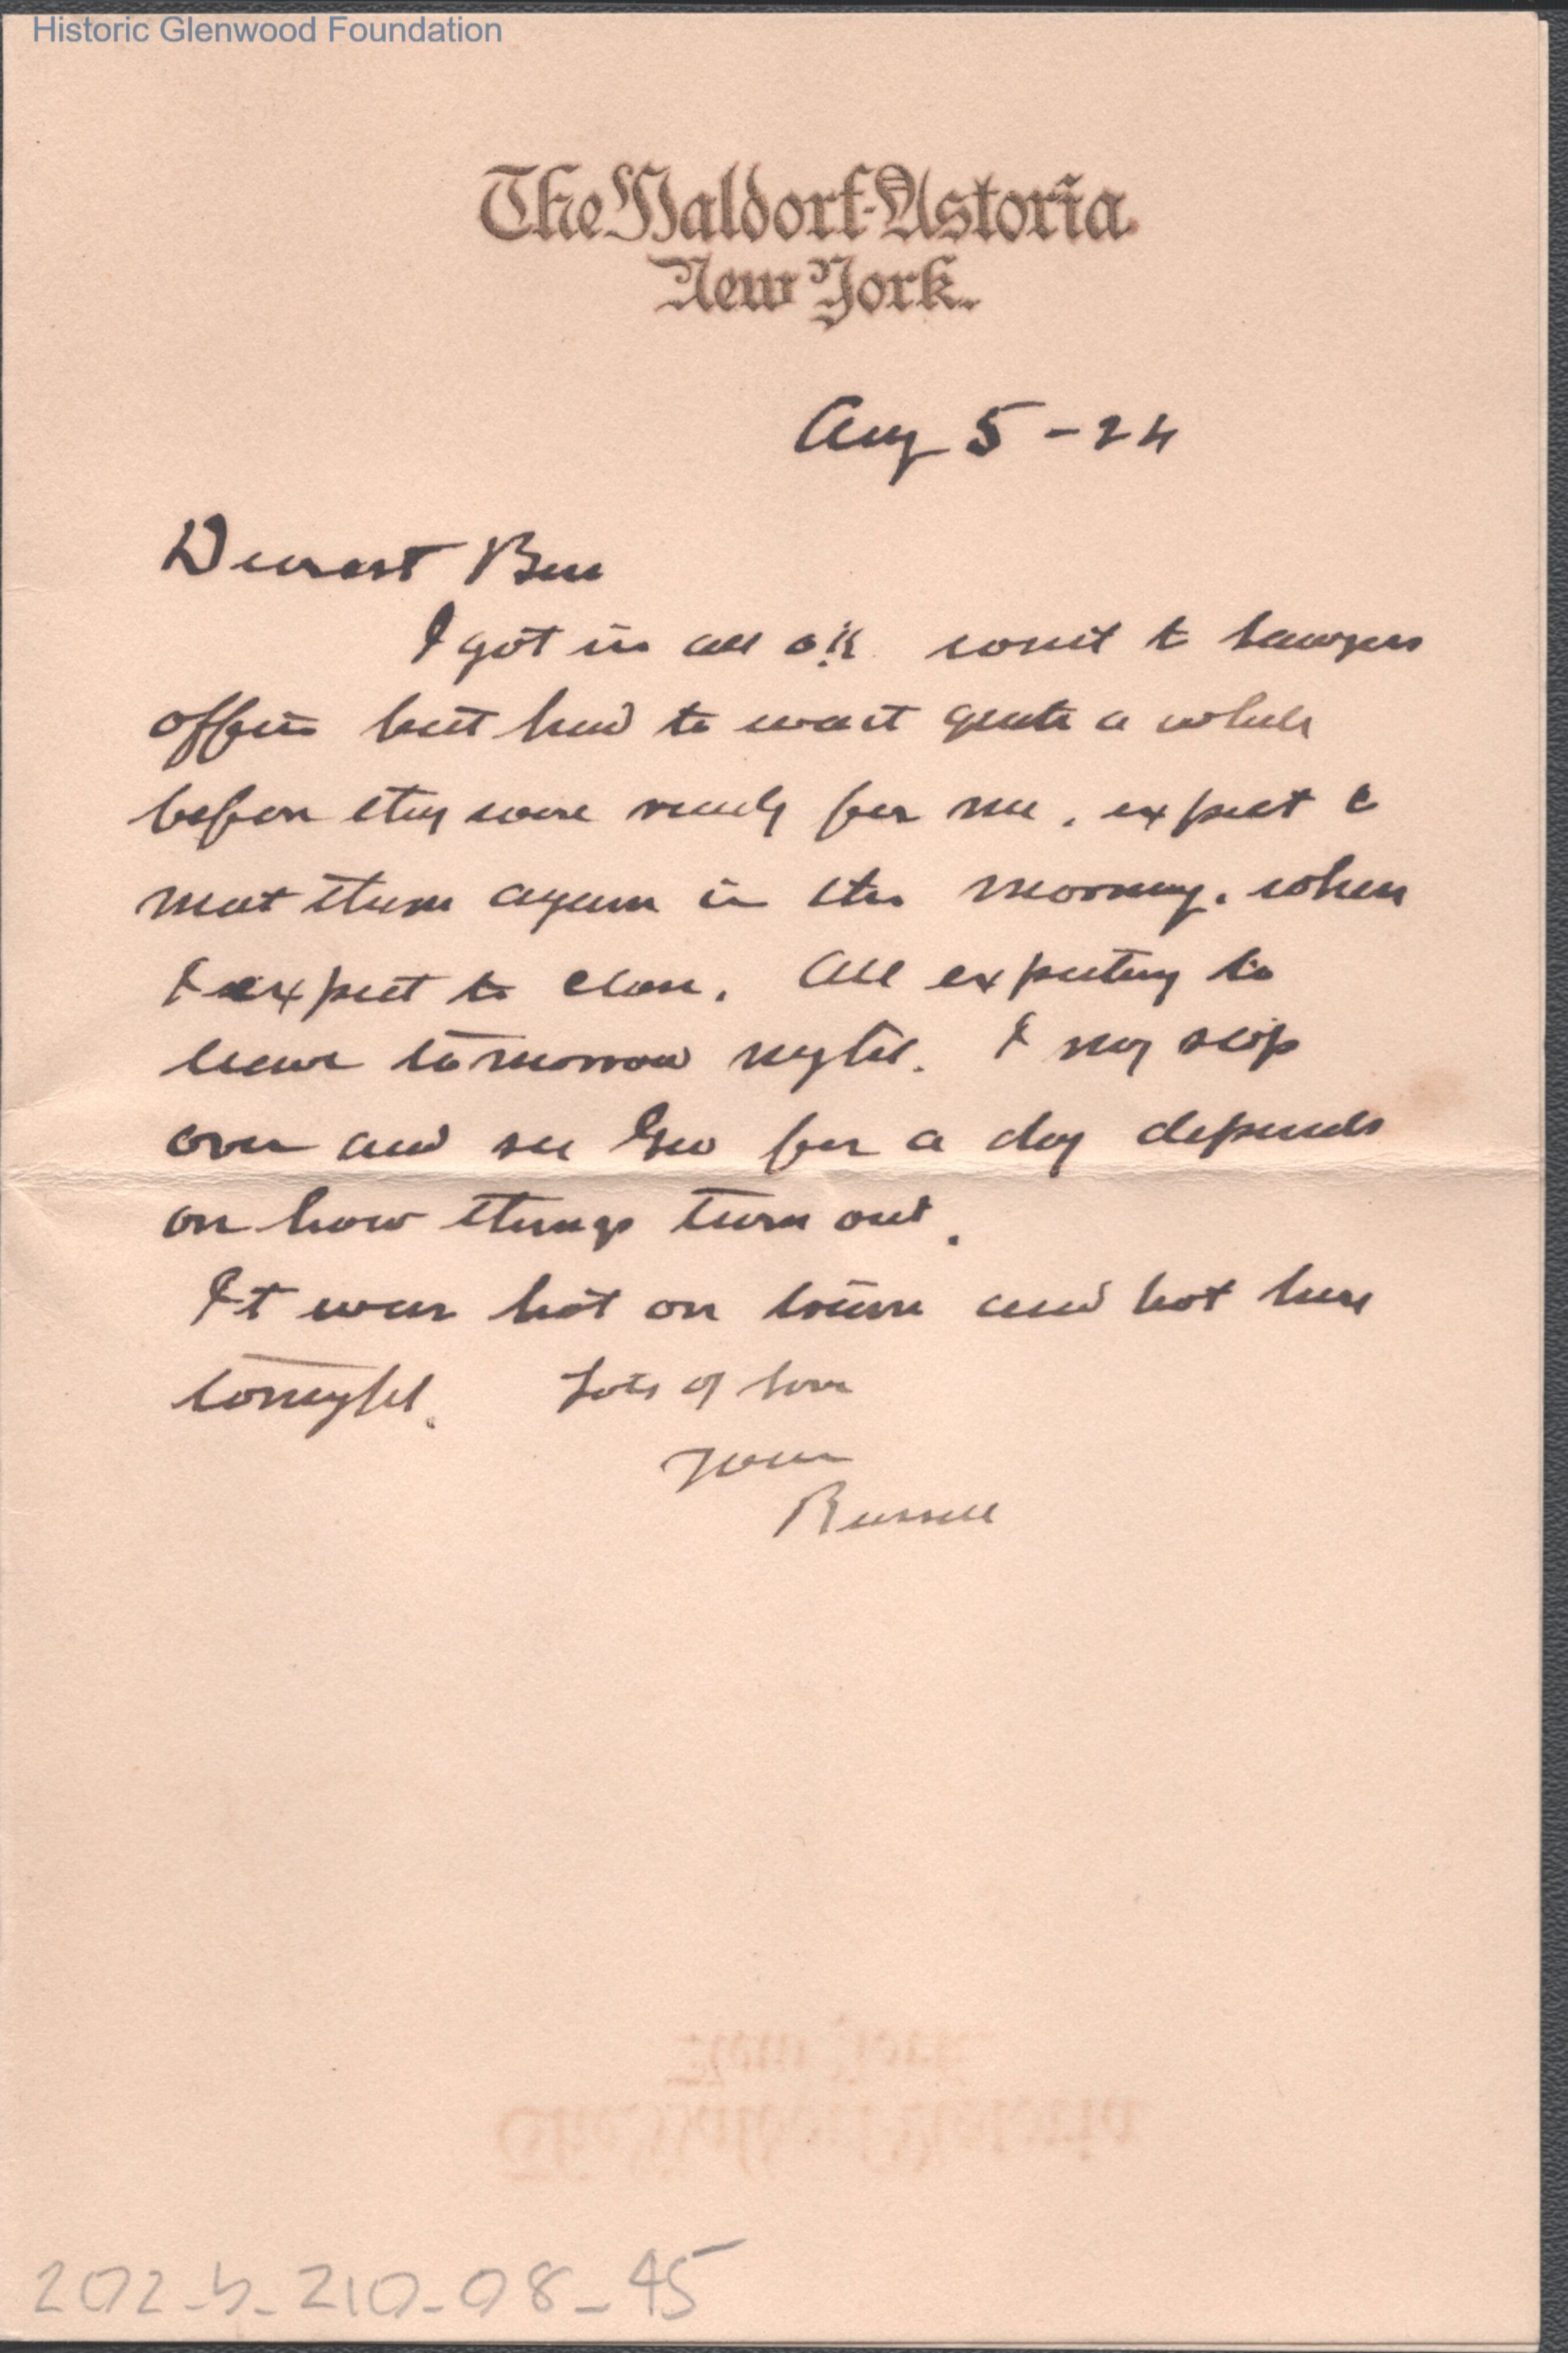 Historic Glenwood Foundation
The Waldorf-Astoria
New York.
Aug 5-24
Dearest
I got in all o.k. went to lawyers
office but had to wait quite a while
before they were ready for me. expect to
meet them again in the morning. when
I expect to close. All expecting to
leave tomorrow night. I may slip
over and see Geo for a day depends
on how things turn out.
It was hot on train and hot here
tonight. Lots of love
Your
Russell
202-b-210-08-45